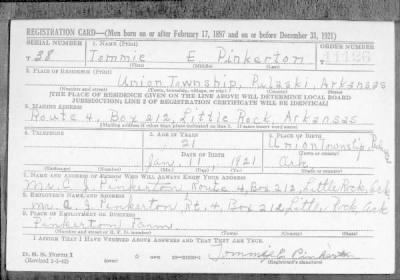 REGISTRATION CARD—(Men born on or after February 17, 1897 and on or before December 31, 1921)
SERIAL NUMBER 1. NAME (Print) ORDER NUMBER
T 38 Tommie E Pinkerton 11426
(First) (Middle) (Last)
2. PLACE OF RESIDENCE (Print)
Union Township, Pulaski, Arkansas
(Number and street) (Town, township, village, or city) (County) (State)
[THE PLACE OF RESIDENCE GIVEN ON THE LINE ABOVE WILL DETERMINE LOCAL BOARD
JURISDICTION; LINE 2 OF REGISTRATION CERTIFICATE WILL BE IDENTICAL]
3. MAILING ADDRESS
Route 4, Box 212, Little Rock, Arkansas
[Mailing address if other than place indicated on line 2. If same insert word same]
4. TELEPHONE 5. AGE IN YEARS 6. PLACE OF BIRTH
21 Union Township,
DATE OF BIRTH (Town or county)
Jan. 1 1921 Ark.
(Exchange) (Number) (Mo.) (Day) (Yr.) (State or country)
7. NAME AND ADDRESS OF PERSON WHO WILL ALWAYS KNOW YOUR ADDRESS
Mr. C. J. Pinkerton Route 4, Box 212, Little Rock, Ark
8. EMPLOYER'S NAME AND ADDRESS
Mr. C. J. Pinkerton Rt. 4 Box 212, Little Rock, Ark
9. PLACE OF EMPLOYMENT OR BUSINESS
Pinkerton Farm
(Number and street or R. F. D. number) (Town) (County) (State)
I AFFIRM THAT I HAVE VERIFIED ABOVE ANSWERS AND THAT THEY ARE TRUE.
D. S. S. Form 1
(Revised 1-1-42) (over) Tommie E Pinkerton
(Registrant's signature)